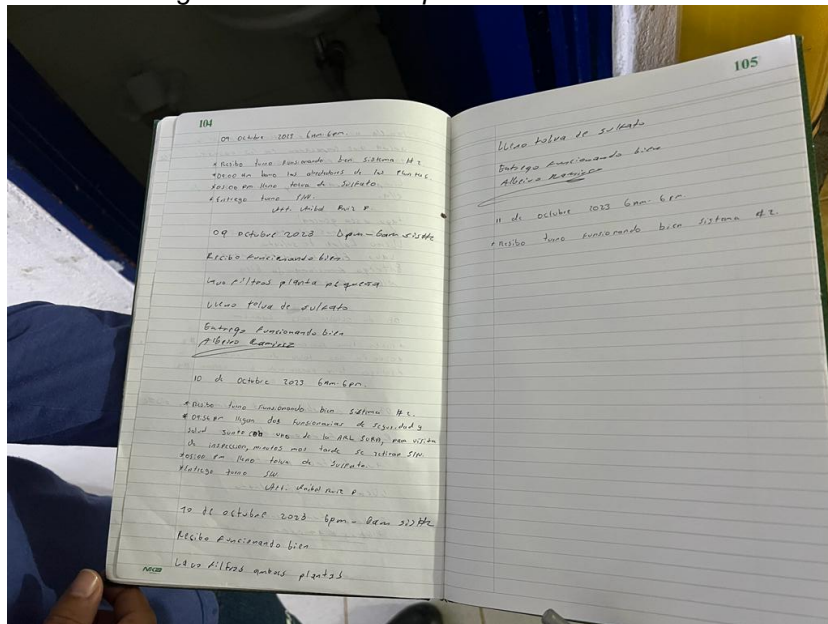 104
09 octubre 2023 6am-6pm
* Recibo turno funsionando bien sistema #2
* 09:00 Am lavo las absolutores de las Plantas.
* 05:00 Pm lleno tolva de sulfato.
* Entrego turno S/N.
Att. Anibal Ruiz P
09 octubre 2023 6pm-6am sis#2
Recibo funcionando bien
Lavo filtros planta pequeña
Lleno tolva de sulfato
Entrego funcionando bien
Albeiro Ramirez
10 de octubre 2023 6am-6pm.
* Recibo turno funsionando bien sistema #2.
* 09:56 Am llegan dos funsionarias de seguridad y
salud junto con uno de la ARL SURA, para visita
de inspección, mientes mas tarde se retiran S/N.
* 05:00 Pm lleno tolva de sulfato.
* Entrego turno S/N.
Att. Anibal Ruiz P
10 de octubre 2023 6pm-6am sis#2
Recibo funcionando bien
Lavo filtros ambas plantas
105
Lleno tolva de sulfato
Entrego funcionando bien
Albeiro Ramirez
11 de octubre 2023 6am-6pm
* Recibo turno funsionando bien sistema #2.